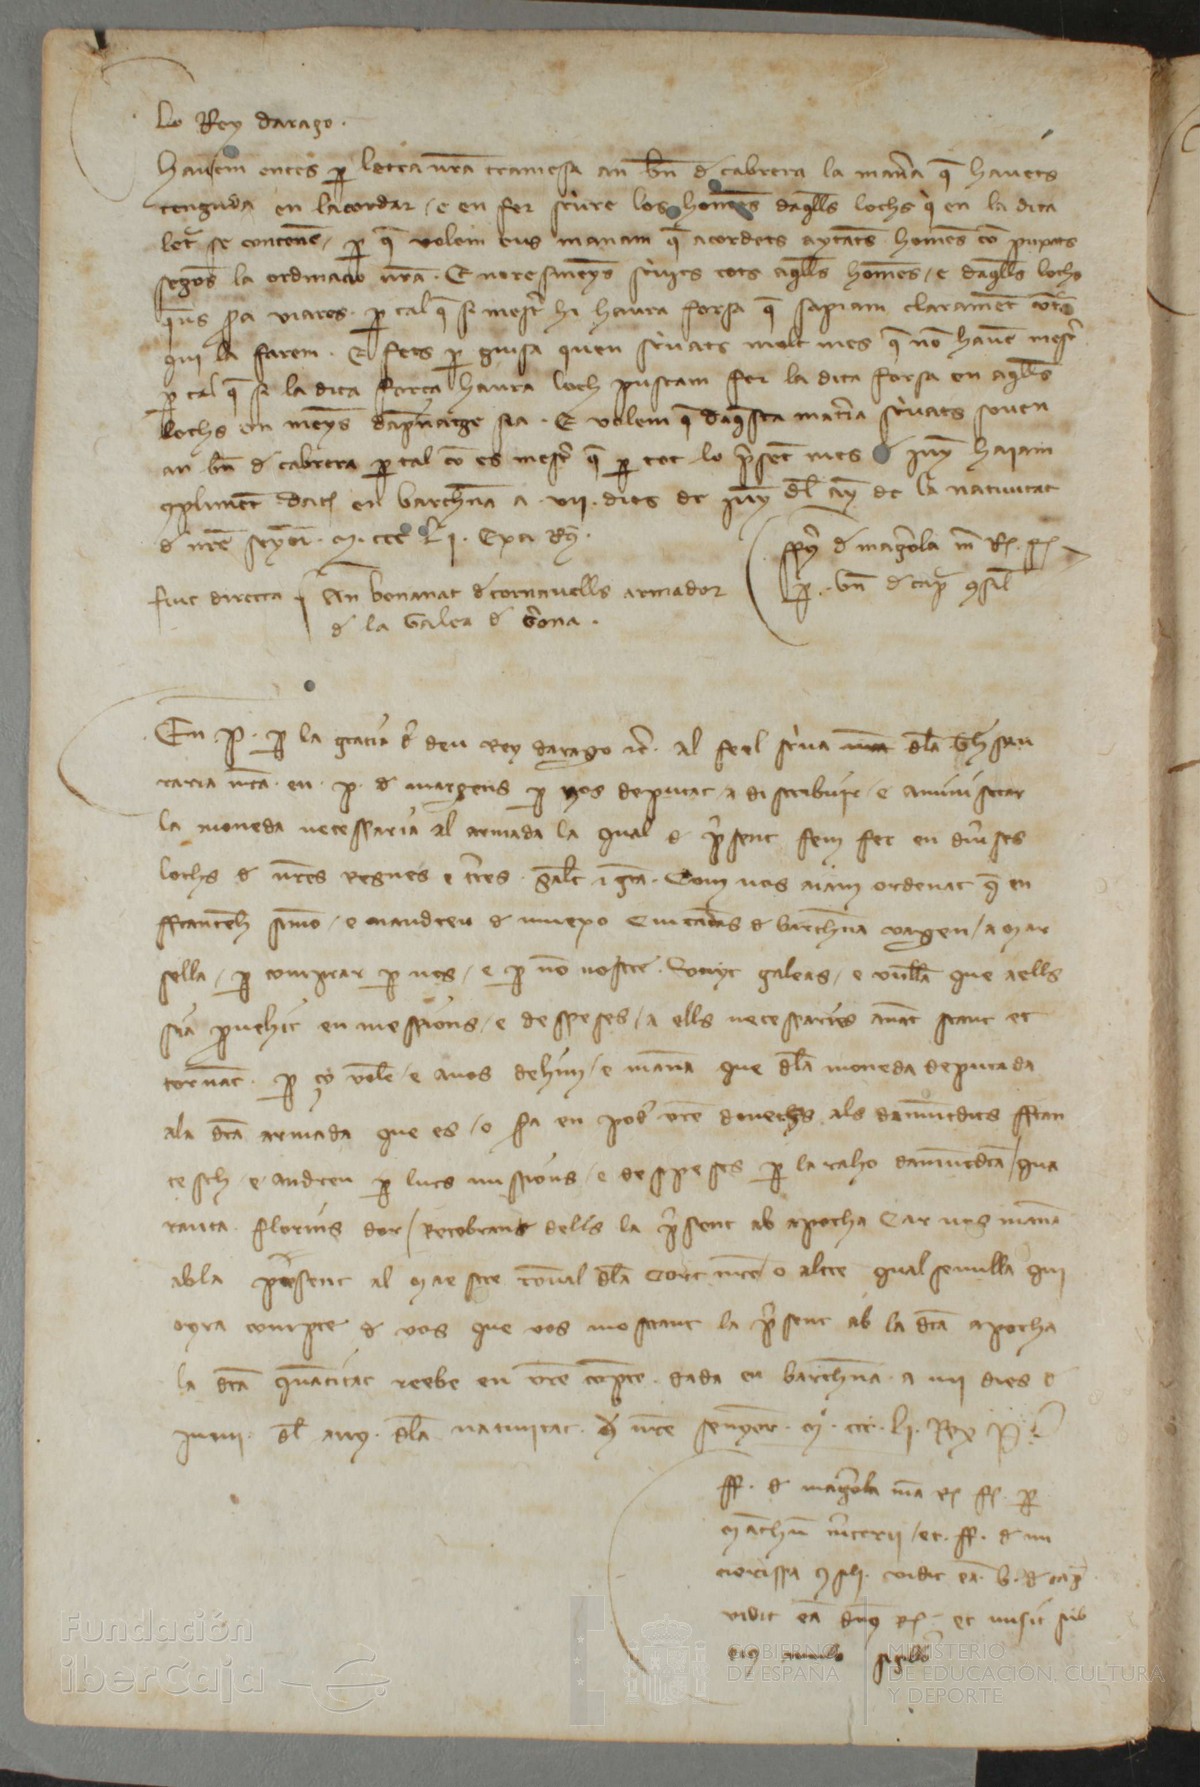 Lo Rey darago.
Havem entes p letra vra tramesa an bn de cabrera la manera q havets
tenguda en lacordar / e en fer scriure los homens daqlls lochs q en la dita
letra se contenen / p q volem eus manam q acordets aytants homens com puxats
segons la ordinacio nra. E noresmenys scrivits tots aqlls homens / e daqlls lochs
quens sia viares. p tal q si mester hi haura forsa q sapiam clarament
qui la farem. E fets p guisa quen scrivats molt mes q no havem mester
p tal q si la dita forsa haura loch puscam fer la dita forsa en aqlls
lochs on meyns dapnatge sia. E volem q daqsta materia scrivats soven
an bn de cabrera p tal com es mester q p tot lo psent mes de juny haiam
compliment. Dat en barchna a .vii. dies de juny del any de la nativitat
de nre senyor. M. ccc Li. Exa Rx.
fuit directa An bonanat de cornavells armador
de la Galea de Gerona.
de magerola m R.
p. bn de cap consil
En .P. p la gracia de deu Rey darago etc. Al feel scriva dla thesau
raria nra. en .p. de margens p nos deputat a distribuir / e aministrar
la moneda necessaria al armada la qual de psent fem fer en diverses
lochs de nres regnes e terres. salut e gra. Com nos aiam ordenat q en
ffrancesch simo / e nandreu de Ciutadans de barchna vagen / a Mar
sella / p comprar p nos / e p nom nostre. galeas / e vullam que a ells
sia provehit en messions / e despeses / a ells necessaries anant stant et
tornant. p ço volem / e a vos dehim / e manam que dla moneda deputada
ala dta armada que es / o sia en poder vre donets als damuntdits ffran
cesch / e andreu p lurs missions / e despeses p la raho damuntdta / qua
ranta florins dor / recobrant dells la psent ab apocha Car nos manam
abla present al Maestre racional dla Cort nra / o altre qualsevulla qui
oyra compte de vos que vos mostrant la psent ab la dta apocha
la dta quantitat reebe en vre compte. dada en barchna. a vii dies de
juny. del any. dla nativitat. de nre senyor. M. ccc. Li. Rex P.
ff. de magerola ma R p
Matheu mercerii / et. ff. de
vidit ea. b. de cap
vidit ea dns R. et misit sub
eius anulo sigillo
Fundación
iberCaja
GOBIERNO
DE ESPAÑA
MINISTERIO
DE EDUCACIÓN, CULTURA
Y DEPORTE